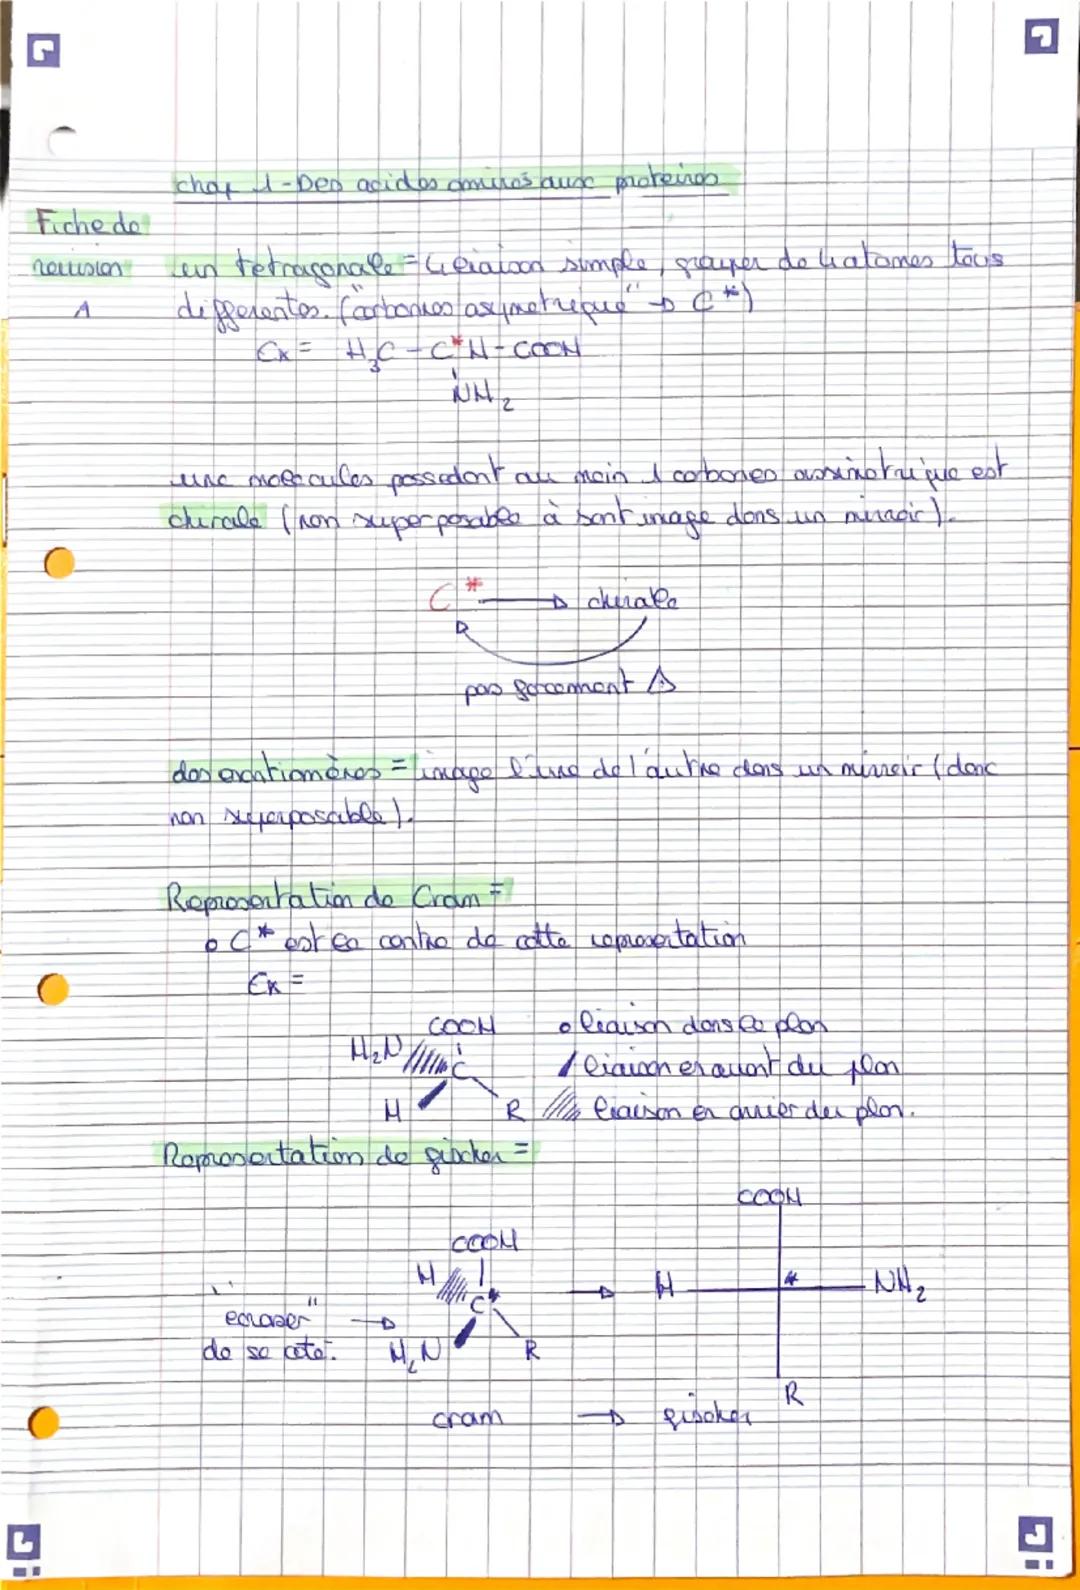 chap 1-Des acides aminés aux proteines
Fiche de
revision
A
un tetragonale = 4 liaison simple, grouper de 4 atomes tous
differentes. (carbones asymetrique" → C*)
Ex = H3C-C*H-COOH
NH2
une molecules possedant au moin 1 carbones assimetrique est
chirale (non superposable à sont image dans un miroir).
C* → chirale
pas forcement ⚠
des enantiomères = image l'une de l'autre dans un miroir (donc
non superposable).
Representation de Cram =
• C* est le centre de cette representation
Ex =
COOH
H2N C
H R
• liaison dans le plan
liaison en avant du plan
liaison en arrier du plan.
Representation de fischer =
COOH
H C*
H2N R
"ecraser" →
de se coté.
→
COOH
H * NH2
R
cram → fischer